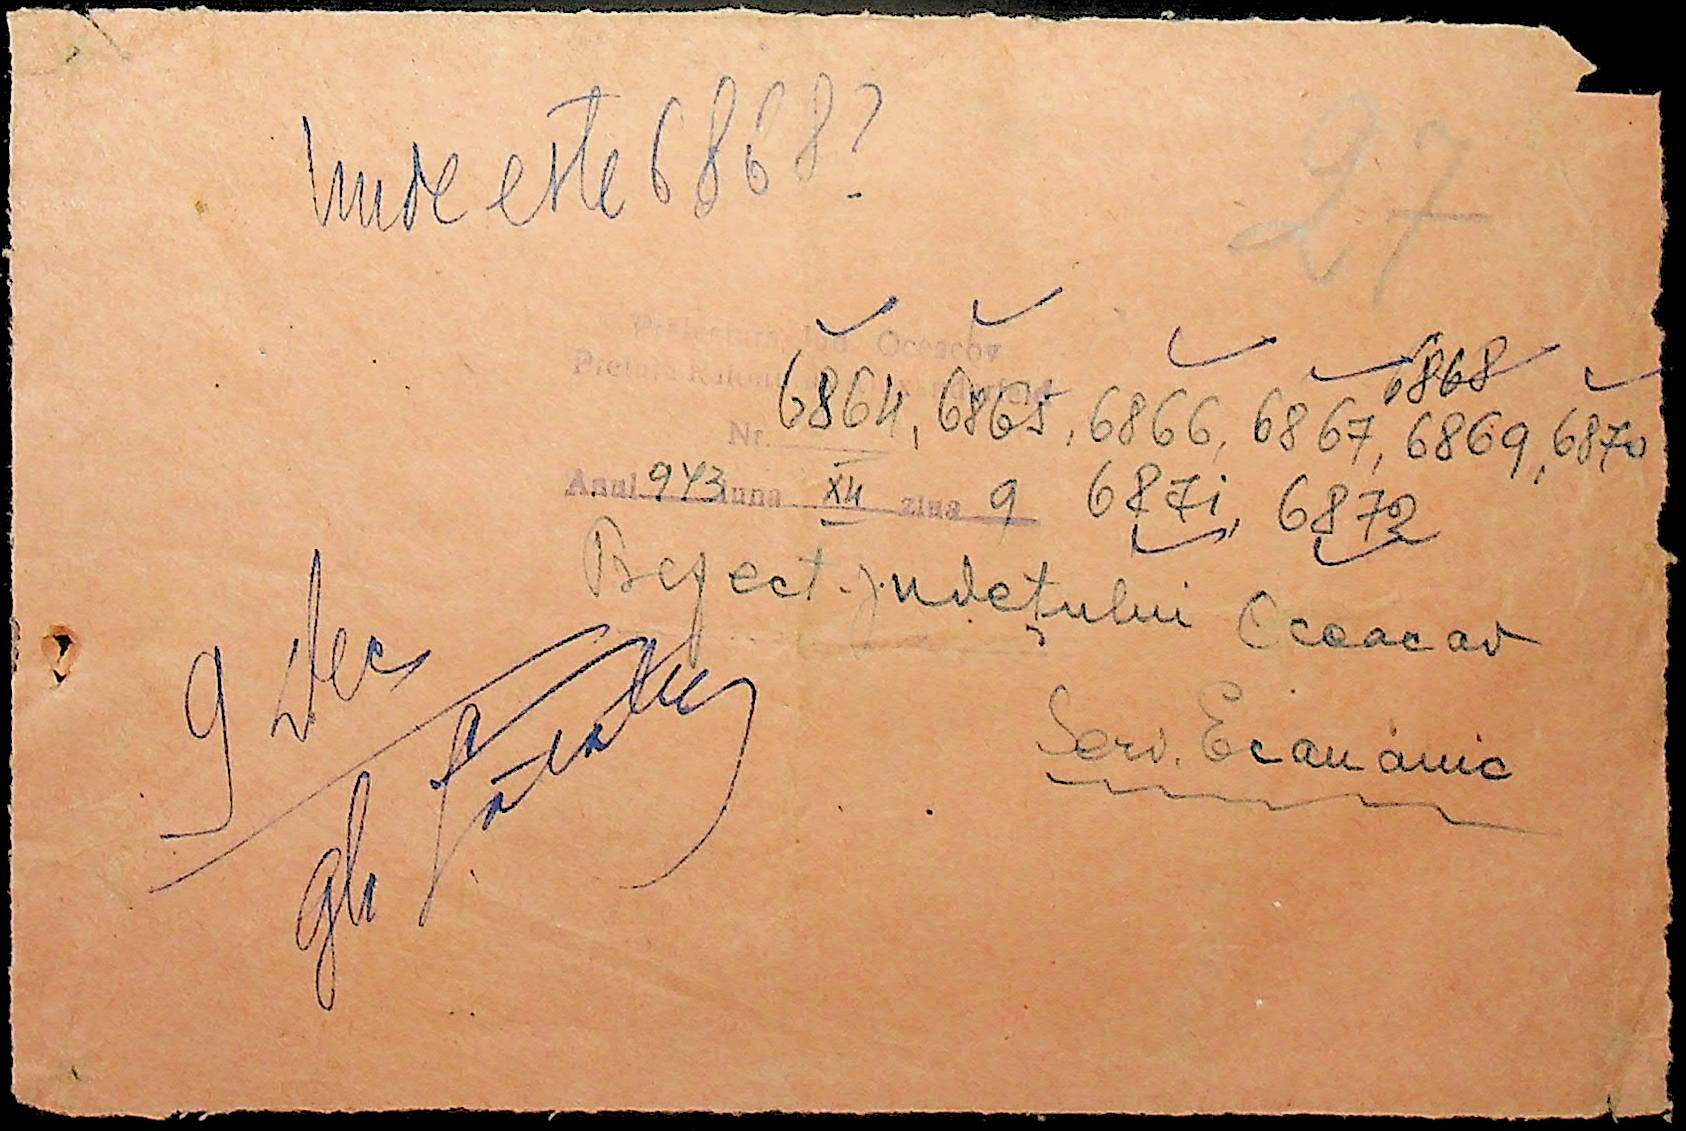 Unde este 6868?
27
Prefectura Jud. Oceacov
Pretura
6868
6864, 6865, 6866, 6867, 6869, 6870
Nr.
Anul 943 luna XII ziua 9 6871, 6872
Prefect. județului Oceacov
9 Dec
Serv. Economic
gh